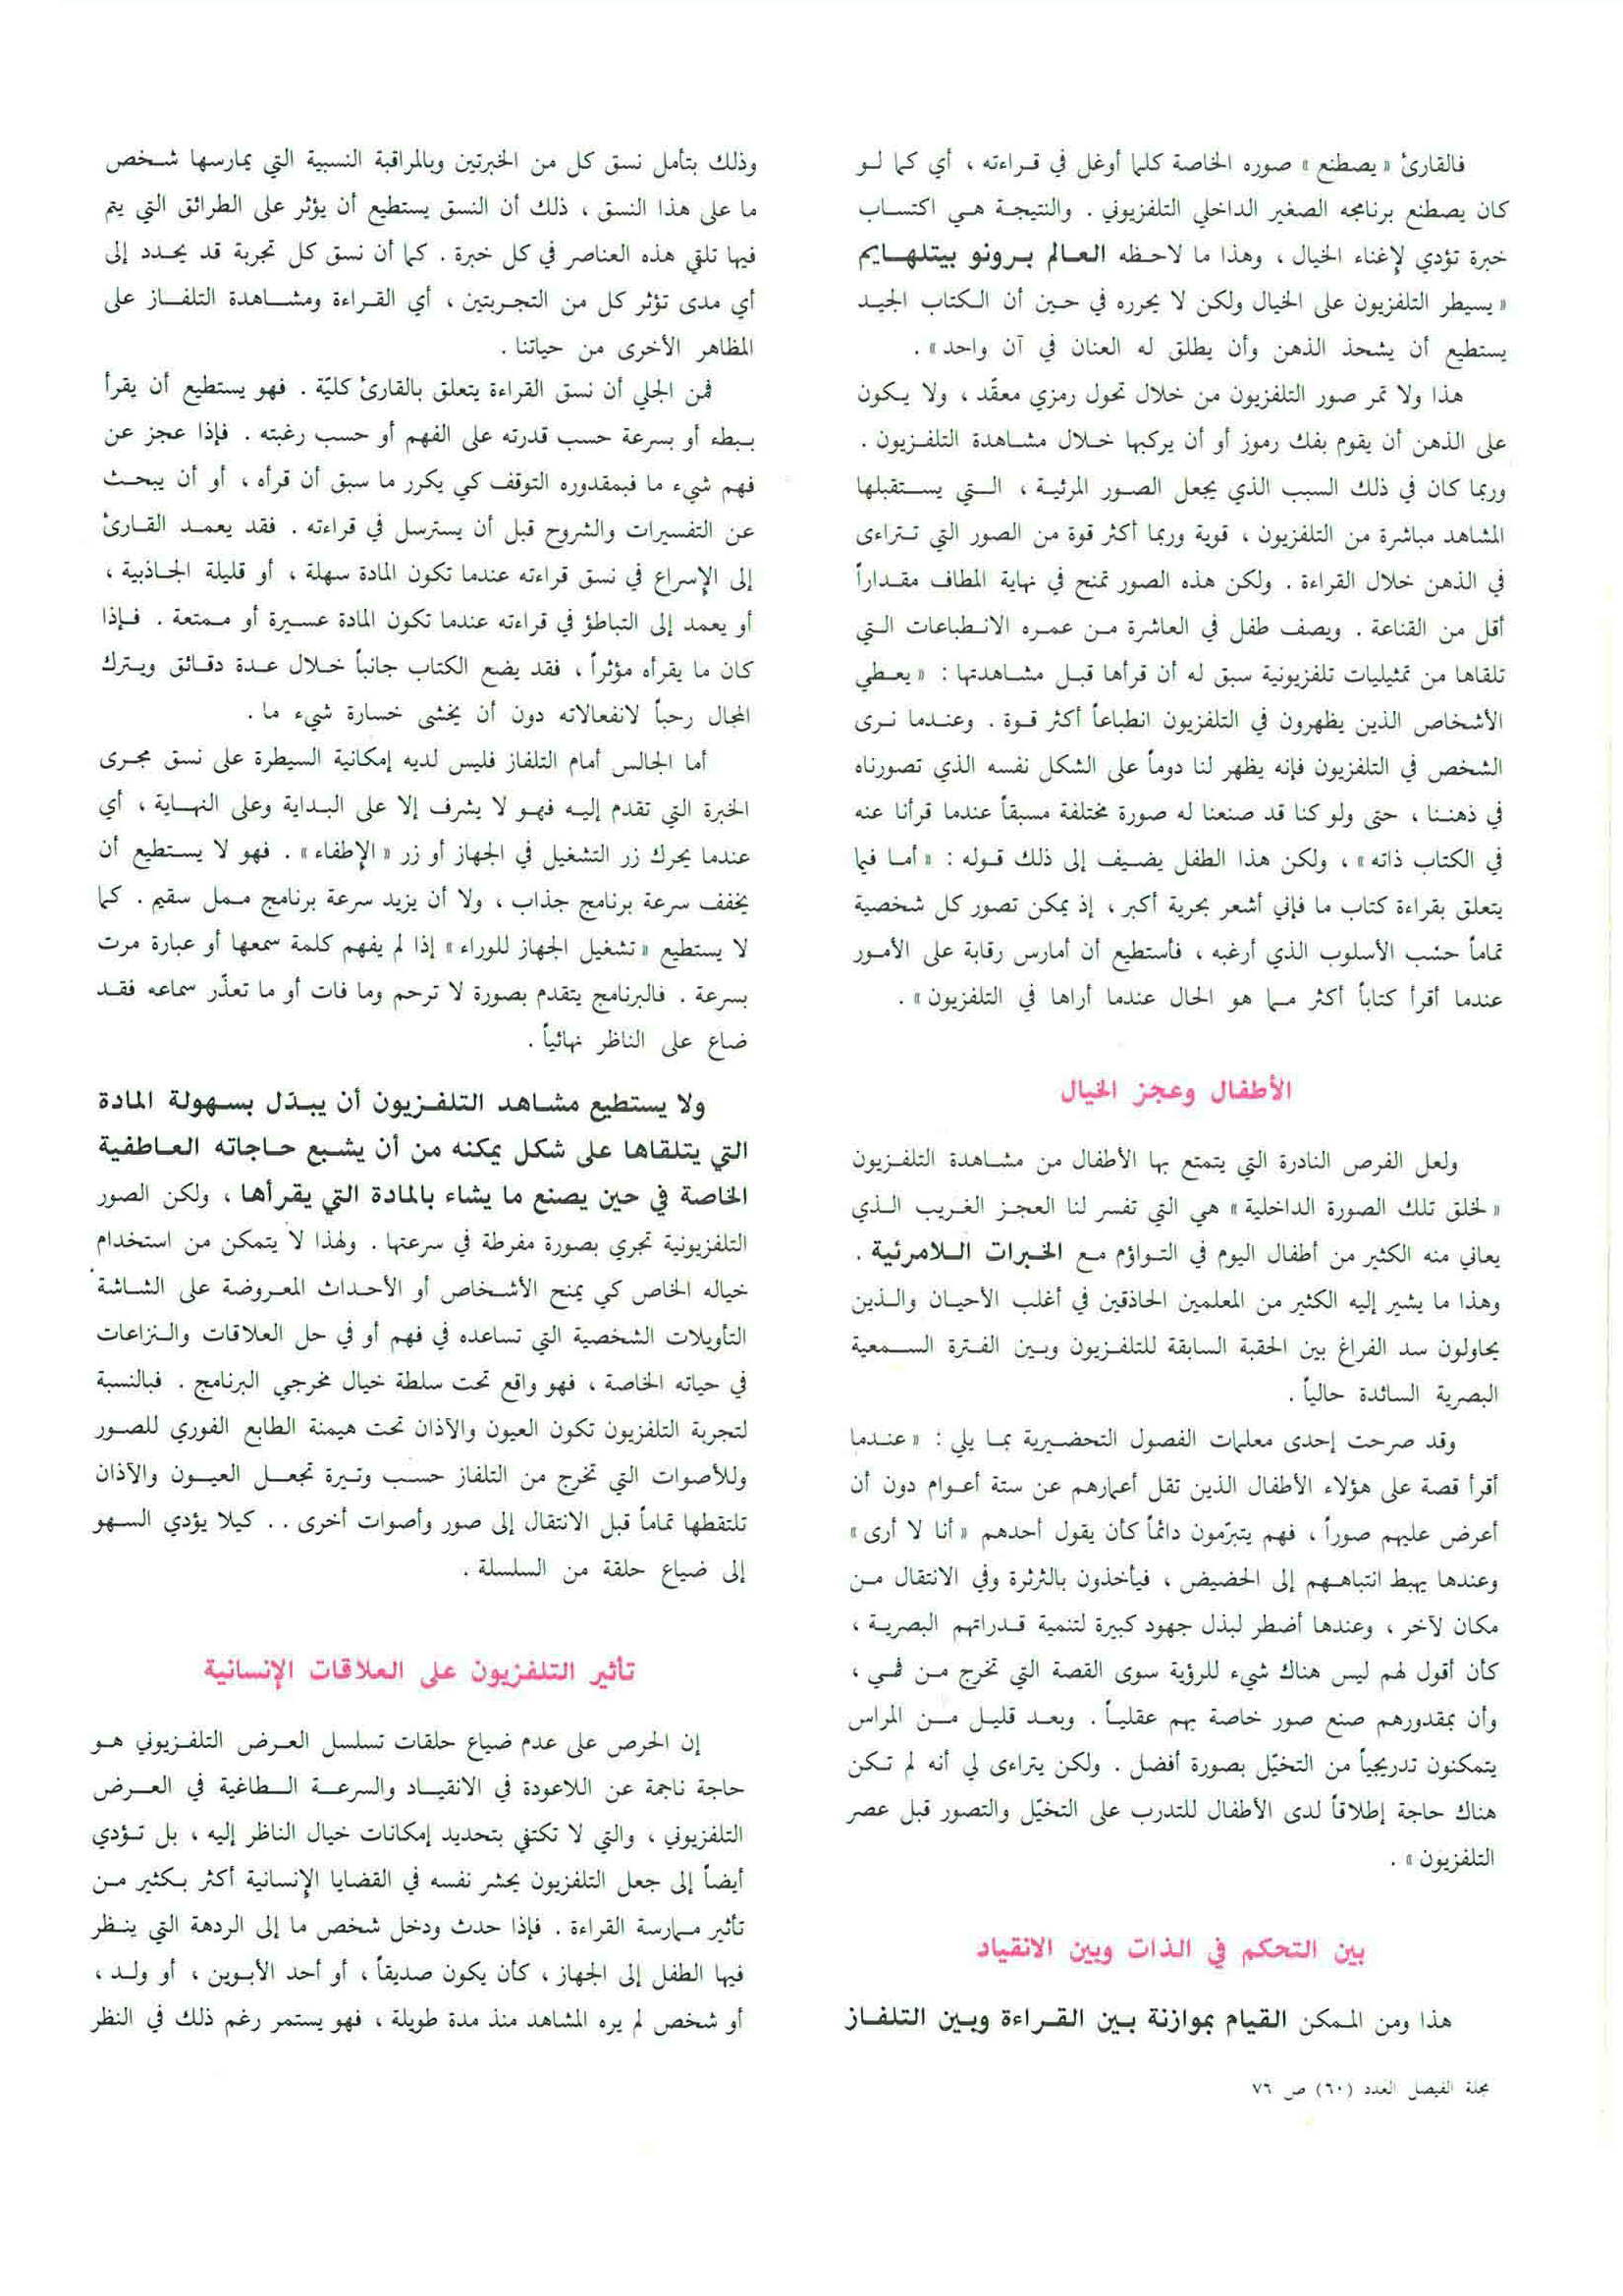 فالقارئ « يصطنع » صوره الخاصة كلما أوغل في قراءته ، أي كما لو
كان يصطنع برنامجه الصغير الداخلي التلفزيوني . والنتيجة هي اكتساب
خبرة تؤدي لإغناء الخيال ، وهذا ما لاحظه العالم برونو بيتلهايم
« يسيطر التلفزيون على الخيال ولكن لا يحرره في حين أن الكتاب الجيد
يستطيع أن يشحذ الذهن وأن يطلق له العنان في آن واحد » .
هذا ولا تمر صور التلفزيون من خلال تحول رمزي معقّد ، ولا يكون
على الذهن أن يقوم بفك رموز أو أن يركبها خلال مشاهدة التلفزيون .
وربما كان في ذلك السبب الذي يجعل الصور المرئية ، التي يستقبلها
المشاهد مباشرة من التلفزيون ، قوية وربما أكثر قوة من الصور التي تتراءى
في الذهن خلال القراءة . ولكن هذه الصور تمنح في نهاية المطاف مقداراً
أقل من القناعة . ويصف طفل في العاشرة من عمره الانطباعات التي
تلقاها من تمثيليات تلفزيونية سبق له أن قرأها قبل مشاهدتها : « يعطي
الأشخاص الذين يظهرون في التلفزيون انطباعاً أكثر قوة . وعندما نرى
الشخص في التلفزيون فإنه يظهر لنا دوماً على الشكل نفسه الذي تصورناه
في ذهننا ، حتى ولو كنا قد صنعنا له صورة مختلفة مسبقاً عندما قرأنا عنه
في الكتاب ذاته » ، ولكن هذا الطفل يضيف إلى ذلك قوله : « أما فيما
يتعلق بقراءة كتاب ما فإني أشعر بحرية أكبر ، إذ يمكن تصور كل شخصية
تماماً حسب الأسلوب الذي أرغبه ، فأستطيع أن أمارس رقابة على الأمور
عندما أقرأ كتاباً أكثر مما هو الحال عندما أراها في التلفزيون » .
الأطفال وعجز الخيال
ولعل الفرص النادرة التي يتمتع بها الأطفال من مشاهدة التلفزيون
« لخلق تلك الصورة الداخلية » هي التي تفسر لنا العجز الغريب الذي
يعاني منه الكثير من أطفال اليوم في التواؤم مع الخبرات اللامرئية .
وهذا ما يشير إليه الكثير من المعلمين الحاذقين في أغلب الأحيان والذين
يحاولون سد الفراغ بين الحقبة السابقة للتلفزيون وبين الفترة السمعية
البصرية السائدة حالياً .
وقد صرحت إحدى معلمات الفصول التحضيرية بما يلي : « عندما
أقرأ قصة على هؤلاء الأطفال الذين تقل أعمارهم عن ستة أعوام دون أن
أعرض عليهم صوراً ، فهم يتبرّمون دائماً كأن يقول أحدهم « أنا لا أرى »
وعندها يهبط انتباههم إلى الحضيض ، فيأخذون بالثرثرة وفي الانتقال من
مكان لآخر ، وعندها أضطر لبذل جهود كبيرة لتنمية قدراتهم البصرية ،
كأن أقول لهم ليس هناك شيء للرؤية سوى القصة التي تخرج من فمي ،
وأن بمقدورهم صنع صور خاصة بهم عقلياً . وبعد قليل من المراس
يتمكنون تدريجياً من التخيّل بصورة أفضل . ولكن يتراءى لي أنه لم تكن
هناك حاجة إطلاقاً لدى الأطفال للتدرب على التخيّل والتصور قبل عصر
التلفزيون » .
بين التحكم في الذات وبين الانقياد
هذا ومن الممكن القيام بموازنة بين القراءة وبين التلفاز
وذلك بتأمل نسق كل من الخبرتين وبالمراقبة النسبية التي يمارسها شخص
ما على هذا النسق ، ذلك أن النسق يستطيع أن يؤثر على الطرائق التي يتم
فيها تلقي هذه العناصر في كل خبرة . كما أن نسق كل تجربة قد يحدد إلى
أي مدى تؤثر كل من التجربتين ، أي القراءة ومشاهدة التلفاز على
المظاهر الأخرى من حياتنا .
فمن الجلي أن نسق القراءة يتعلق بالقارئ كليّة . فهو يستطيع أن يقرأ
ببطء أو بسرعة حسب قدرته على الفهم أو حسب رغبته . فإذا عجز عن
فهم شيء ما فبمقدوره التوقف كي يكرر ما سبق أن قرأه ، أو أن يبحث
عن التفسيرات والشروح قبل أن يسترسل في قراءته . فقد يعمد القارئ
إلى الإسراع في نسق قراءته عندما تكون المادة سهلة ، أو قليلة الجاذبية ،
أو يعمد إلى التباطؤ في قراءته عندما تكون المادة عسيرة أو ممتعة . فإذا
كان ما يقرأه مؤثراً ، فقد يضع الكتاب جانباً خلال عدة دقائق ويترك
المجال رحباً لانفعالاته دون أن يخشى خسارة شيء ما .
أما الجالس أمام التلفاز فليس لديه إمكانية السيطرة على نسق مجرى
الخبرة التي تقدم إليه فهو لا يشرف إلا على البداية وعلى النهاية ، أي
عندما يحرك زر التشغيل في الجهاز أو زر « الإطفاء » . فهو لا يستطيع أن
يخفف سرعة برنامج جذاب ، ولا أن يزيد سرعة برنامج ممل سقيم . كما
لا يستطيع « تشغيل الجهاز للوراء » إذا لم يفهم كلمة سمعها أو عبارة مرت
بسرعة . فالبرنامج يتقدم بصورة لا ترحم وما فات أو ما تعذّر سماعه فقد
ضاع على الناظر نهائياً .
ولا يستطيع مشاهد التلفزيون أن يبدّل بسهولة المادة
التي يتلقاها على شكل يمكنه من أن يشبع حاجاته العاطفية
الخاصة في حين يصنع ما يشاء بالمادة التي يقرأها ، ولكن الصور
التلفزيونية تجري بصورة مفرطة في سرعتها . ولهذا لا يتمكن من استخدام
خياله الخاص كي يمنح الأشخاص أو الأحداث المعروضة على الشاشة
التأويلات الشخصية التي تساعده في فهم أو في حل العلاقات والنزاعات
في حياته الخاصة ، فهو واقع تحت سلطة خيال مخرجي البرنامج . فبالنسبة
لتجربة التلفزيون تكون العيون والآذان تحت هيمنة الطابع الفوري للصور
وللأصوات التي تخرج من التلفاز حسب وتيرة تجعل العيون والآذان
تلتقطها تماماً قبل الانتقال إلى صور وأصوات أخرى .. كيلا يؤدي السهو
إلى ضياع حلقة من السلسلة .
تأثير التلفزيون على العلاقات الإنسانية
إن الحرص على عدم ضياع حلقات تسلسل العرض التلفزيوني هو
حاجة ناجمة عن اللاعودة في الانقياد والسرعة الطاغية في العرض
التلفزيوني ، والتي لا تكتفي بتحديد إمكانات خيال الناظر إليه ، بل تؤدي
أيضاً إلى جعل التلفزيون يحشر نفسه في القضايا الإنسانية أكثر بكثير من
تأثير ممارسة القراءة . فإذا حدث ودخل شخص ما إلى الردهة التي ينظر
فيها الطفل إلى الجهاز ، كأن يكون صديقاً ، أو أحد الأبوين ، أو ولد ،
أو شخص لم يره المشاهد منذ مدة طويلة ، فهو يستمر رغم ذلك في النظر
مجلة الفيصل العدد (٦٠) ص ٧٦